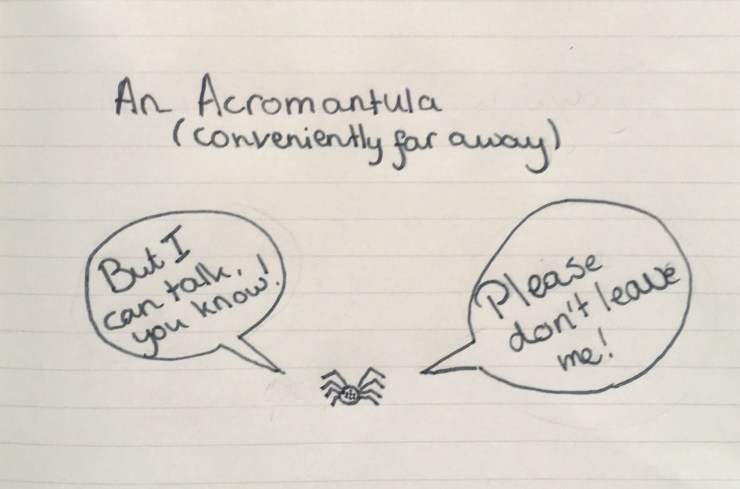 An Acromantula
(conveniently far away)
But I
can talk,
you know!
Please
don't leave
me!